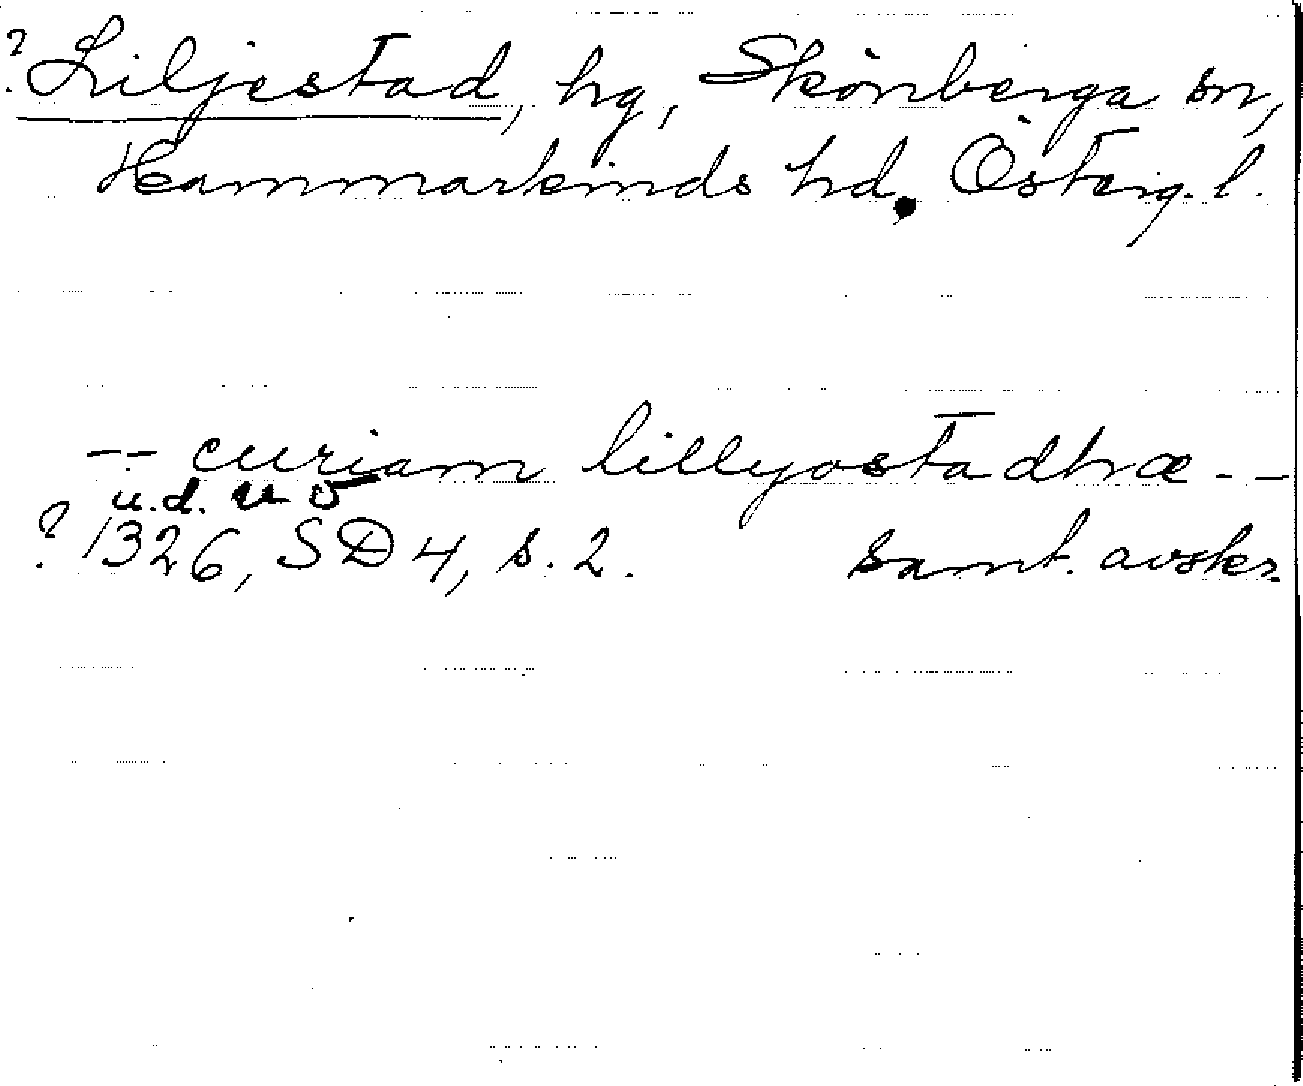 ? Liljestad, hg, Skönberga sn,
Hammarkinds hd, Österg. l.
-- curiam lillyostadhræ --
u.d. u o
? 1326, SD 4, s. 2. samt. avskr.